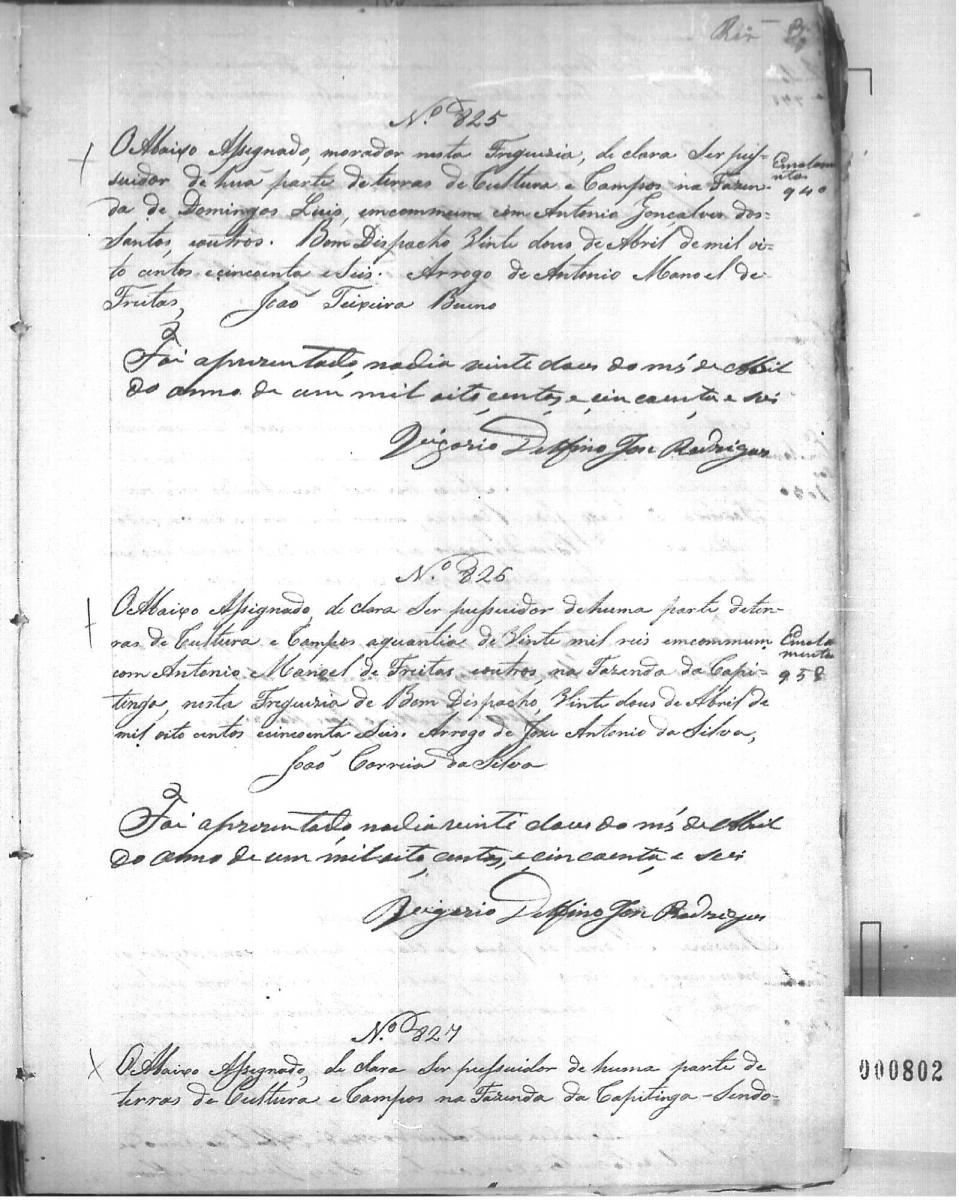 Nº 825
O Abaixo Assignado, morador nesta Freguezia, de clara Ser pus-
suidor de huã parte de terras de Cultura e Campos na Fazen-
da de Domingos Luis, emcommum com Antonio Gonçalves dos
Santos, eoutros. Bom Dispacho Vinte dous de Abril de mil oi-
to centos ecincoenta e Seis. Arrogo de Antonio Manoel de
Freitas, João Teixeira Bueno
Emolumentos
940
Foi aprezentado, nodia vinte dous do mês de Abril
do anno de um mil oito centos e cincoenta e seis
Veigario Delfino Jose Rodrigues
Nº 826
O Abaixo Assignado, de clara Ser pussuidor de huma parte deter-
ras de Cultura e Campos aquantia de Vinte mil reis emcommum
com Antonio Manoel de Freitas eoutros, na Fazenda da Capi-
tinga, nesta Freguezia de Bom Dispacho, Vinte dous de Abril de
mil oito centos ecincoenta eSeis. Arrogo de Jose Antonio da Silva,
João Correia da Silva
Emolumentos
958
Foi aprezentado, nodia vinte dous do mês de Abril
do anno de um mil oito, centos, e cincoenta, e seis
Veigario Delfino Jose Rodrigues
Nº 827
O Abaixo Assignado, de clara Ser pussuidor de huma parte de
terras de Cultura e Campos na Fazenda da Capitinga - Sendo-
000802